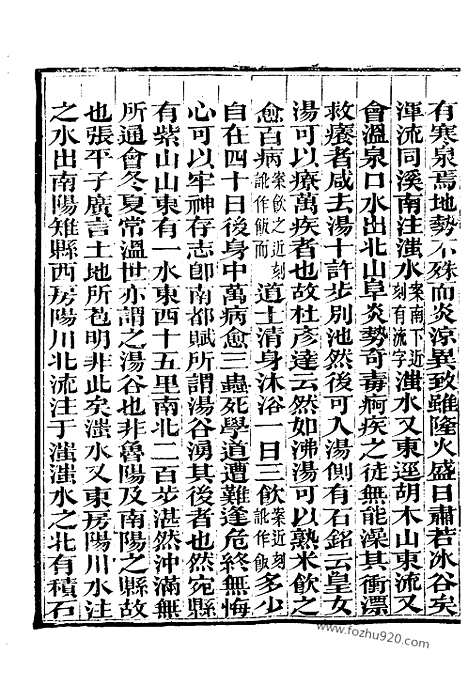 有寒泉焉地勢不殊而炎涼異致雖隆火盛日肅若冰谷矣
渾流同溪南注滍水案南下近刻有流字滍水又東逕胡木山東流又
會溫泉口水出北山阜炎勢奇毒痾疾之徒無能澡其衝漂
救癢者咸去湯十許步別池然後可入湯側有石銘云皇女
湯可以療萬疾者也故杜彥達云然如沸湯可以熟米飲之
愈百病案飲之近刻訛作飯而道士清身沐浴一日三飲案近刻訛作飯多少
自在四十日後身中萬病愈三蟲死學道遭難逢危終無悔
心可以牢神存志卽南都賦所謂湯谷湧其後者也然宛縣
有紫山山東有一水東西十五里南北二百步湛然沖滿無
所通會冬夏常溫世亦謂之湯谷也非魯陽及南陽之縣故
也張平子廣言土地所苞明非此矣滍水又東房陽川水注
之水出南陽雉縣西房陽川北流注于滍滍水之北有積石
www.fozhu920.com